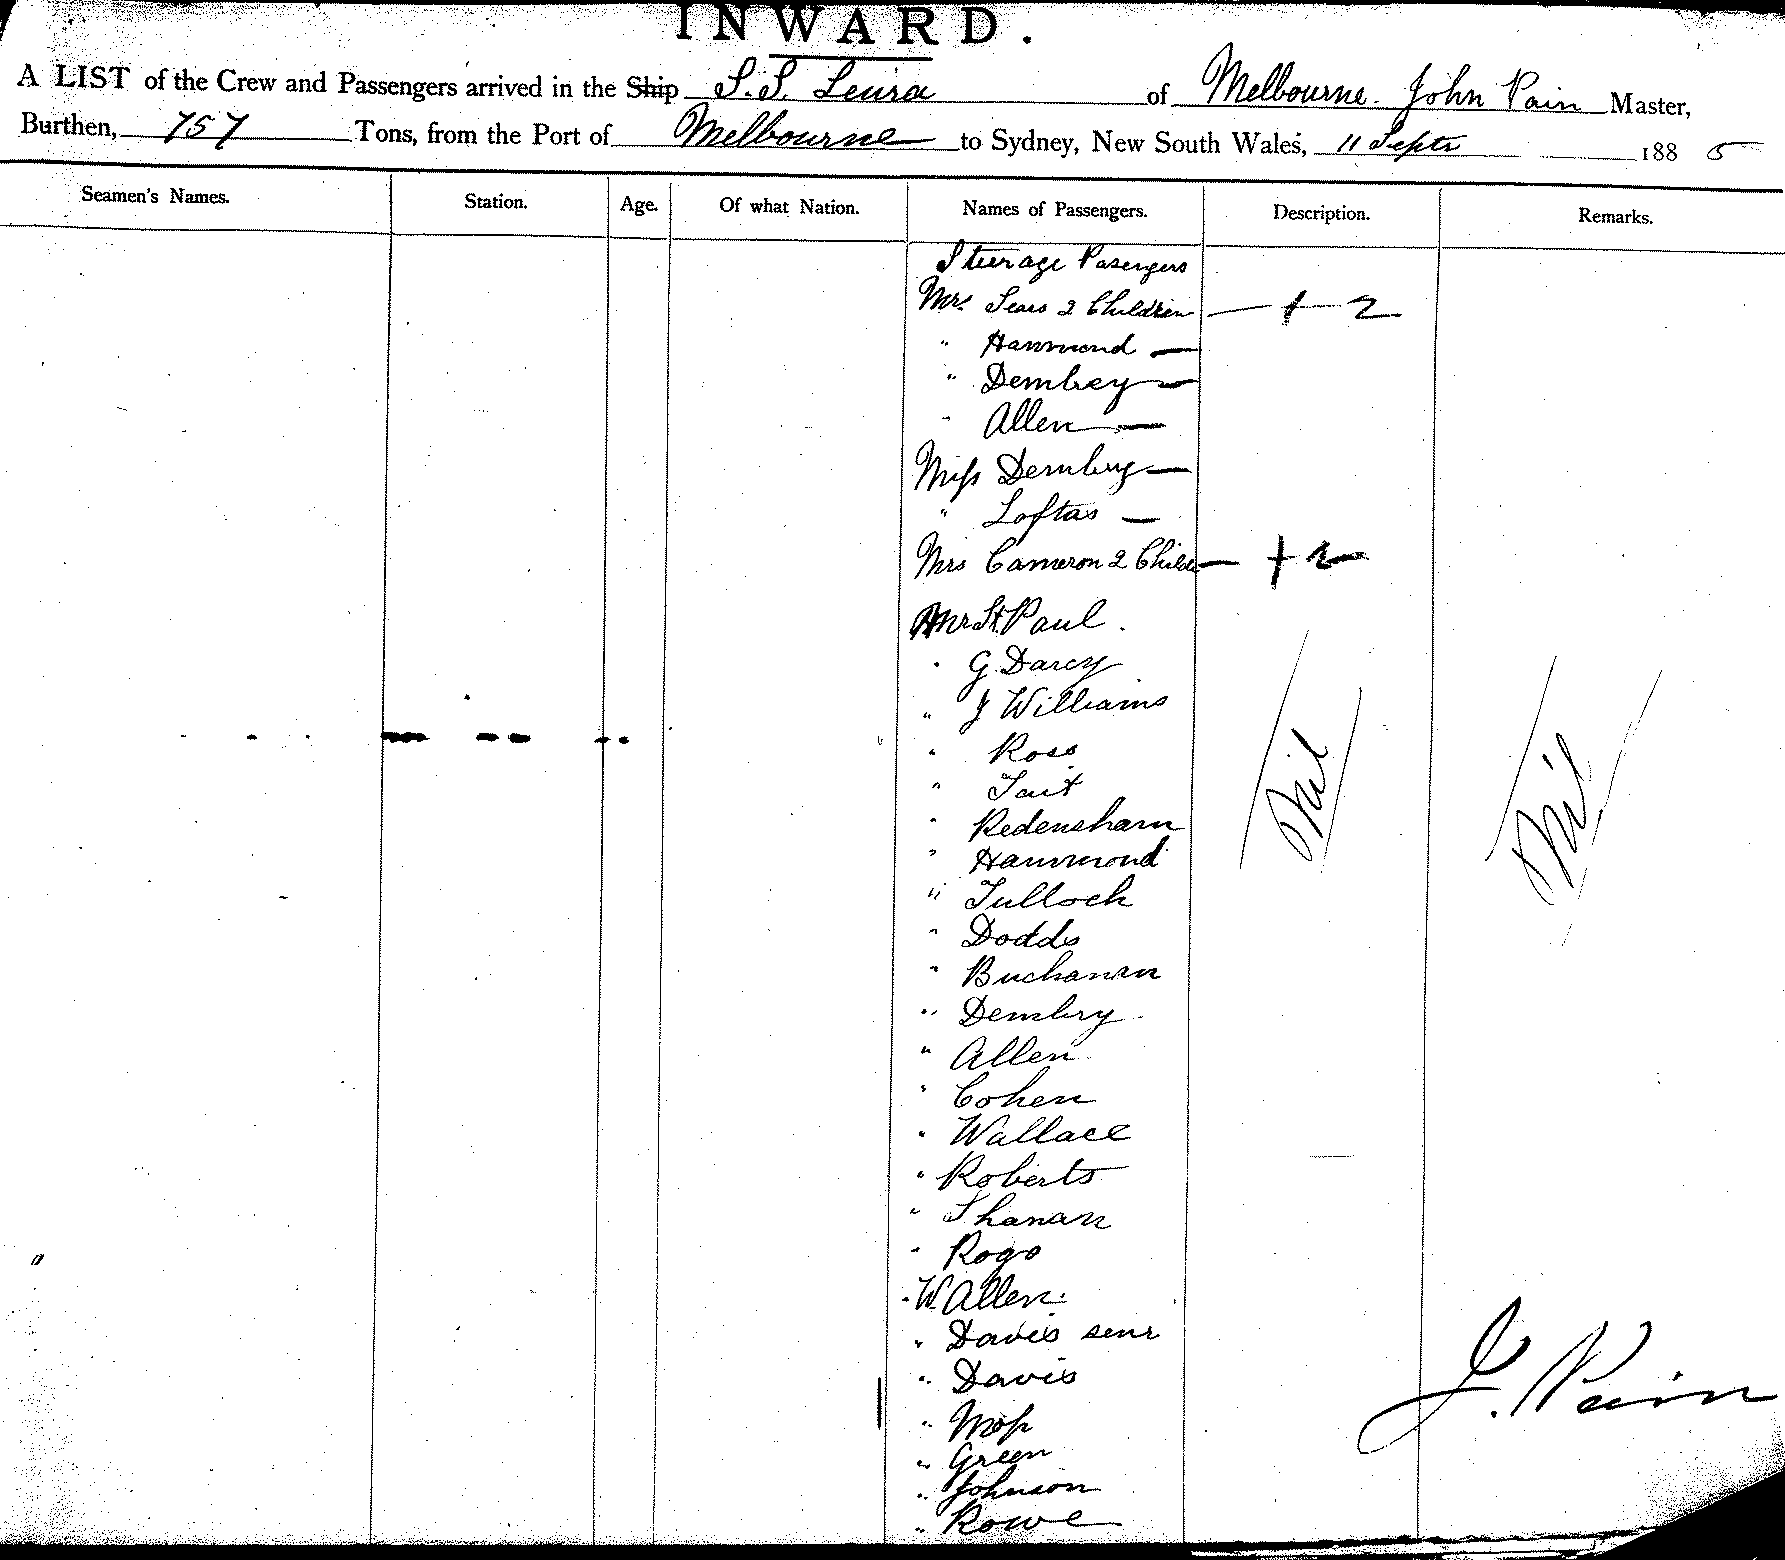 INWARD.
A LIST of the Crew and Passengers arrived in the Ship S.S. Leura of Melbourne. John Pain Master,
Burthen, 757 Tons, from the Port of Melbourne to Sydney, New South Wales, 11 Septr 188 5
Seamen's Names. Station. Age. Of what Nation. Names of Passengers. Description. Remarks.
Steerage Passengers
Mrs Sears 2 Children — + 2
" Hammond —
" Dembey —
" Allen —
Miss Dembry —
" Loftas —
Mrs Cameron 2 Childn — + 2
Mr St Paul.
" G. Darcy
" J Williams
" Ross
" Tait
" Redensham
" Hammond
" Tulloch
" Dodds
" Buchanan
" Dembry
" Allen
" Cohen
" Wallace
" Roberts
" Shanan
" Rogo
" W Allen
" Davis senr
" Davis
" Moss
" Green
" Johnson
" Rowe
Nil
Nil
J. Pain